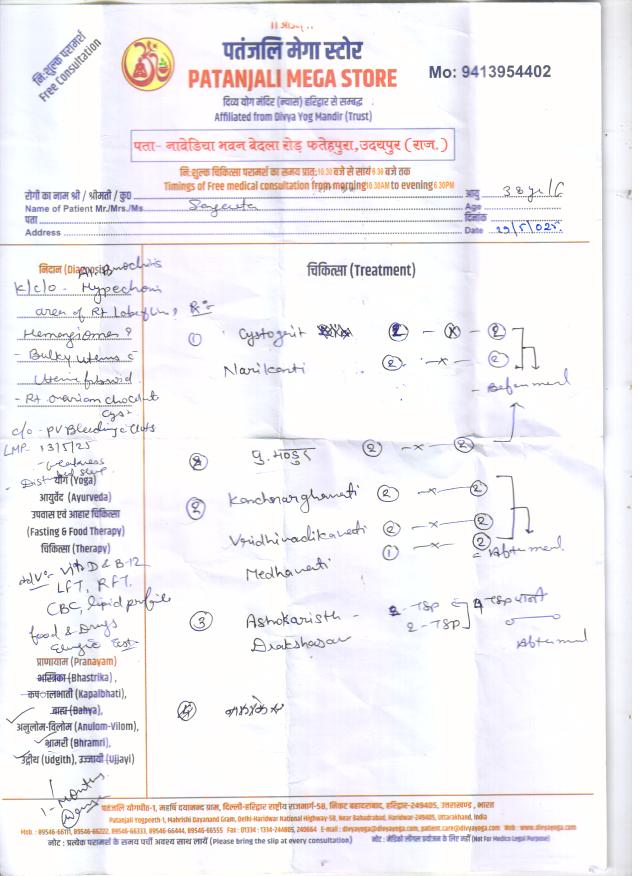 ।। ओ३म् ।।
नि:शुल्क परामर्श
Free Consultation
पतंजलि मेगा स्टोर
PATANJALI MEGA STORE
Mo: 9413954402
दिव्य योग मंदिर (न्यास) हरिद्वार से सम्बद्ध
Affiliated from Divya Yog Mandir (Trust)
पता- नावेडिया भवन बेदला रोड़ फतेहपुरा,उदयपुर (राज.)
नि:शुल्क चिकित्सा परामर्श का समय प्रात: 10.30 बजे से सायं 6.30 बजे तक
Timings of Free medical consultation from morning 10.30AM to evening 6.30PM
रोगी का नाम श्री / श्रीमती / कु० आयु 38 yr/F
Name of Patient Mr./Mrs./Ms Age
पता दिनांक
Address Date 29/5/025
निदान (Diagnosis) चिकित्सा (Treatment)
K/c/o - Hypoechoic
area of Rt Lobe of liver Rx
Hemangiomas ?
① Cystogrit ② - x - ②
- Bulky uterus c
Narikanti ② - x - ②
Uterine fibroid
- Before meal
- Rt ovarian chocolate
cyst
c/o - PV Bleeding c Clots
LMP 13/5/25
पु. मण्डुर ② - x - ②
- weakness
- Disturbed sleep
योग (Yoga)
② Kanchnarghanvati ② - x - ②
आयुर्वेद (Ayurveda)
उपवास एवं आहार चिकित्सा
Vridhivadikavati ② - x - ②
(Fasting & Food Therapy)
चिकित्सा (Therapy)
Medhavati ① - x - ②
- After meal
Adv:- Vit D & B-12
LFT, RFT,
CBC, lipid profile
③ Ashokaristh - 2-TSP 4 TSP पानी
Drakshasav 2-TSP After meal
food & Drugs
Allergic Test
प्राणायाम (Pranayam)
भस्त्रिका (Bhastrika) ,
कपालभाती (Kapalbhati),
④
बाह्य (Bahya),
अनुलोम-विलोम (Anulom-Vilom),
भ्रामरी (Bhramri),
उद्गीथ (Udgith), उज्जायी (Ujjayi)
1 - months
पतंजलि योगपीठ-1, महर्षि दयानन्द ग्राम, दिल्ली-हरिद्वार राष्ट्रीय राजमार्ग-58, निकट बहादराबाद, हरिद्वार-249405, उत्तराखण्ड , भारत
Patanjali Yogpeeth-1, Mahrishi Dayanand Gram, Delhi-Haridwar National Highway-58, Near Bahadrabad, Haridwar-249405, Uttarakhand, India
Mob : 89546-66111, 89546-66222, 89546-66333, 89546-66444, 89546-66555 Fax : 01334 : 1334-244805, 240664 E-mail : divyayoga@divyayoga.com, patient.care@divyayoga.com Web : www.divyayoga.com
नोट : प्रत्येक परामर्श के समय पर्ची अवश्य साथ लायें (Please bring the slip at every consultation) नोट : मेडिको लीगल प्रयोजन के लिए नहीं (Not For Medico Legal Purpose)